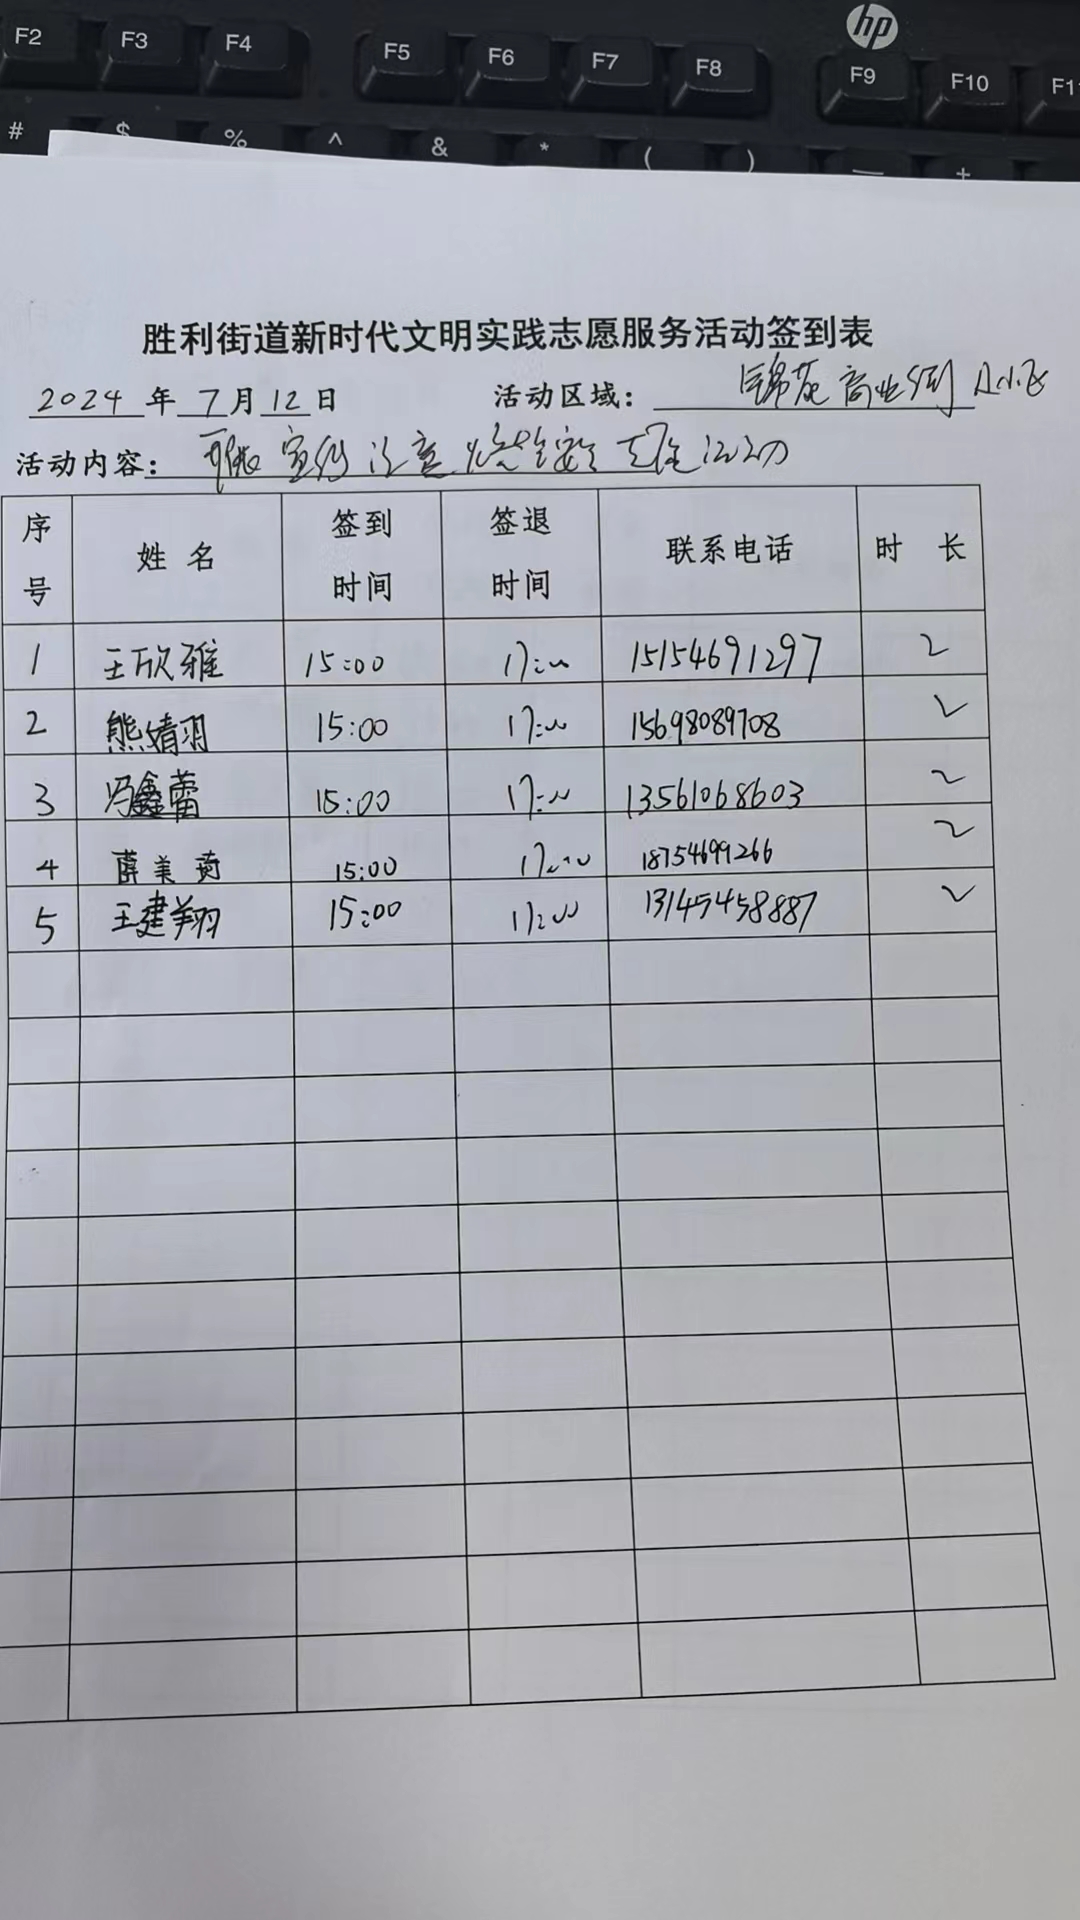 F2 F3 F4 F5 F6 F7 F8 hp F9 F10 F11
# $ % ^ & * ( ) — +
胜利街道新时代文明实践志愿服务活动签到表
2024 年 7 月 12 日 活动区域： 锦苑商业街
活动内容： 宣传注意燃气安全
序号 姓名 签到时间 签退时间 联系电话 时长
1 王欣雅 15:00 17:00 15154691297 2
2 熊婧羽 15:00 17:00 15698089708 2
3 冯鑫蕾 15:00 17:00 13561068603 2
4 薛美 15:00 17:00 18754699266 2
5 王建翔 15:00 17:00 13145458887 2